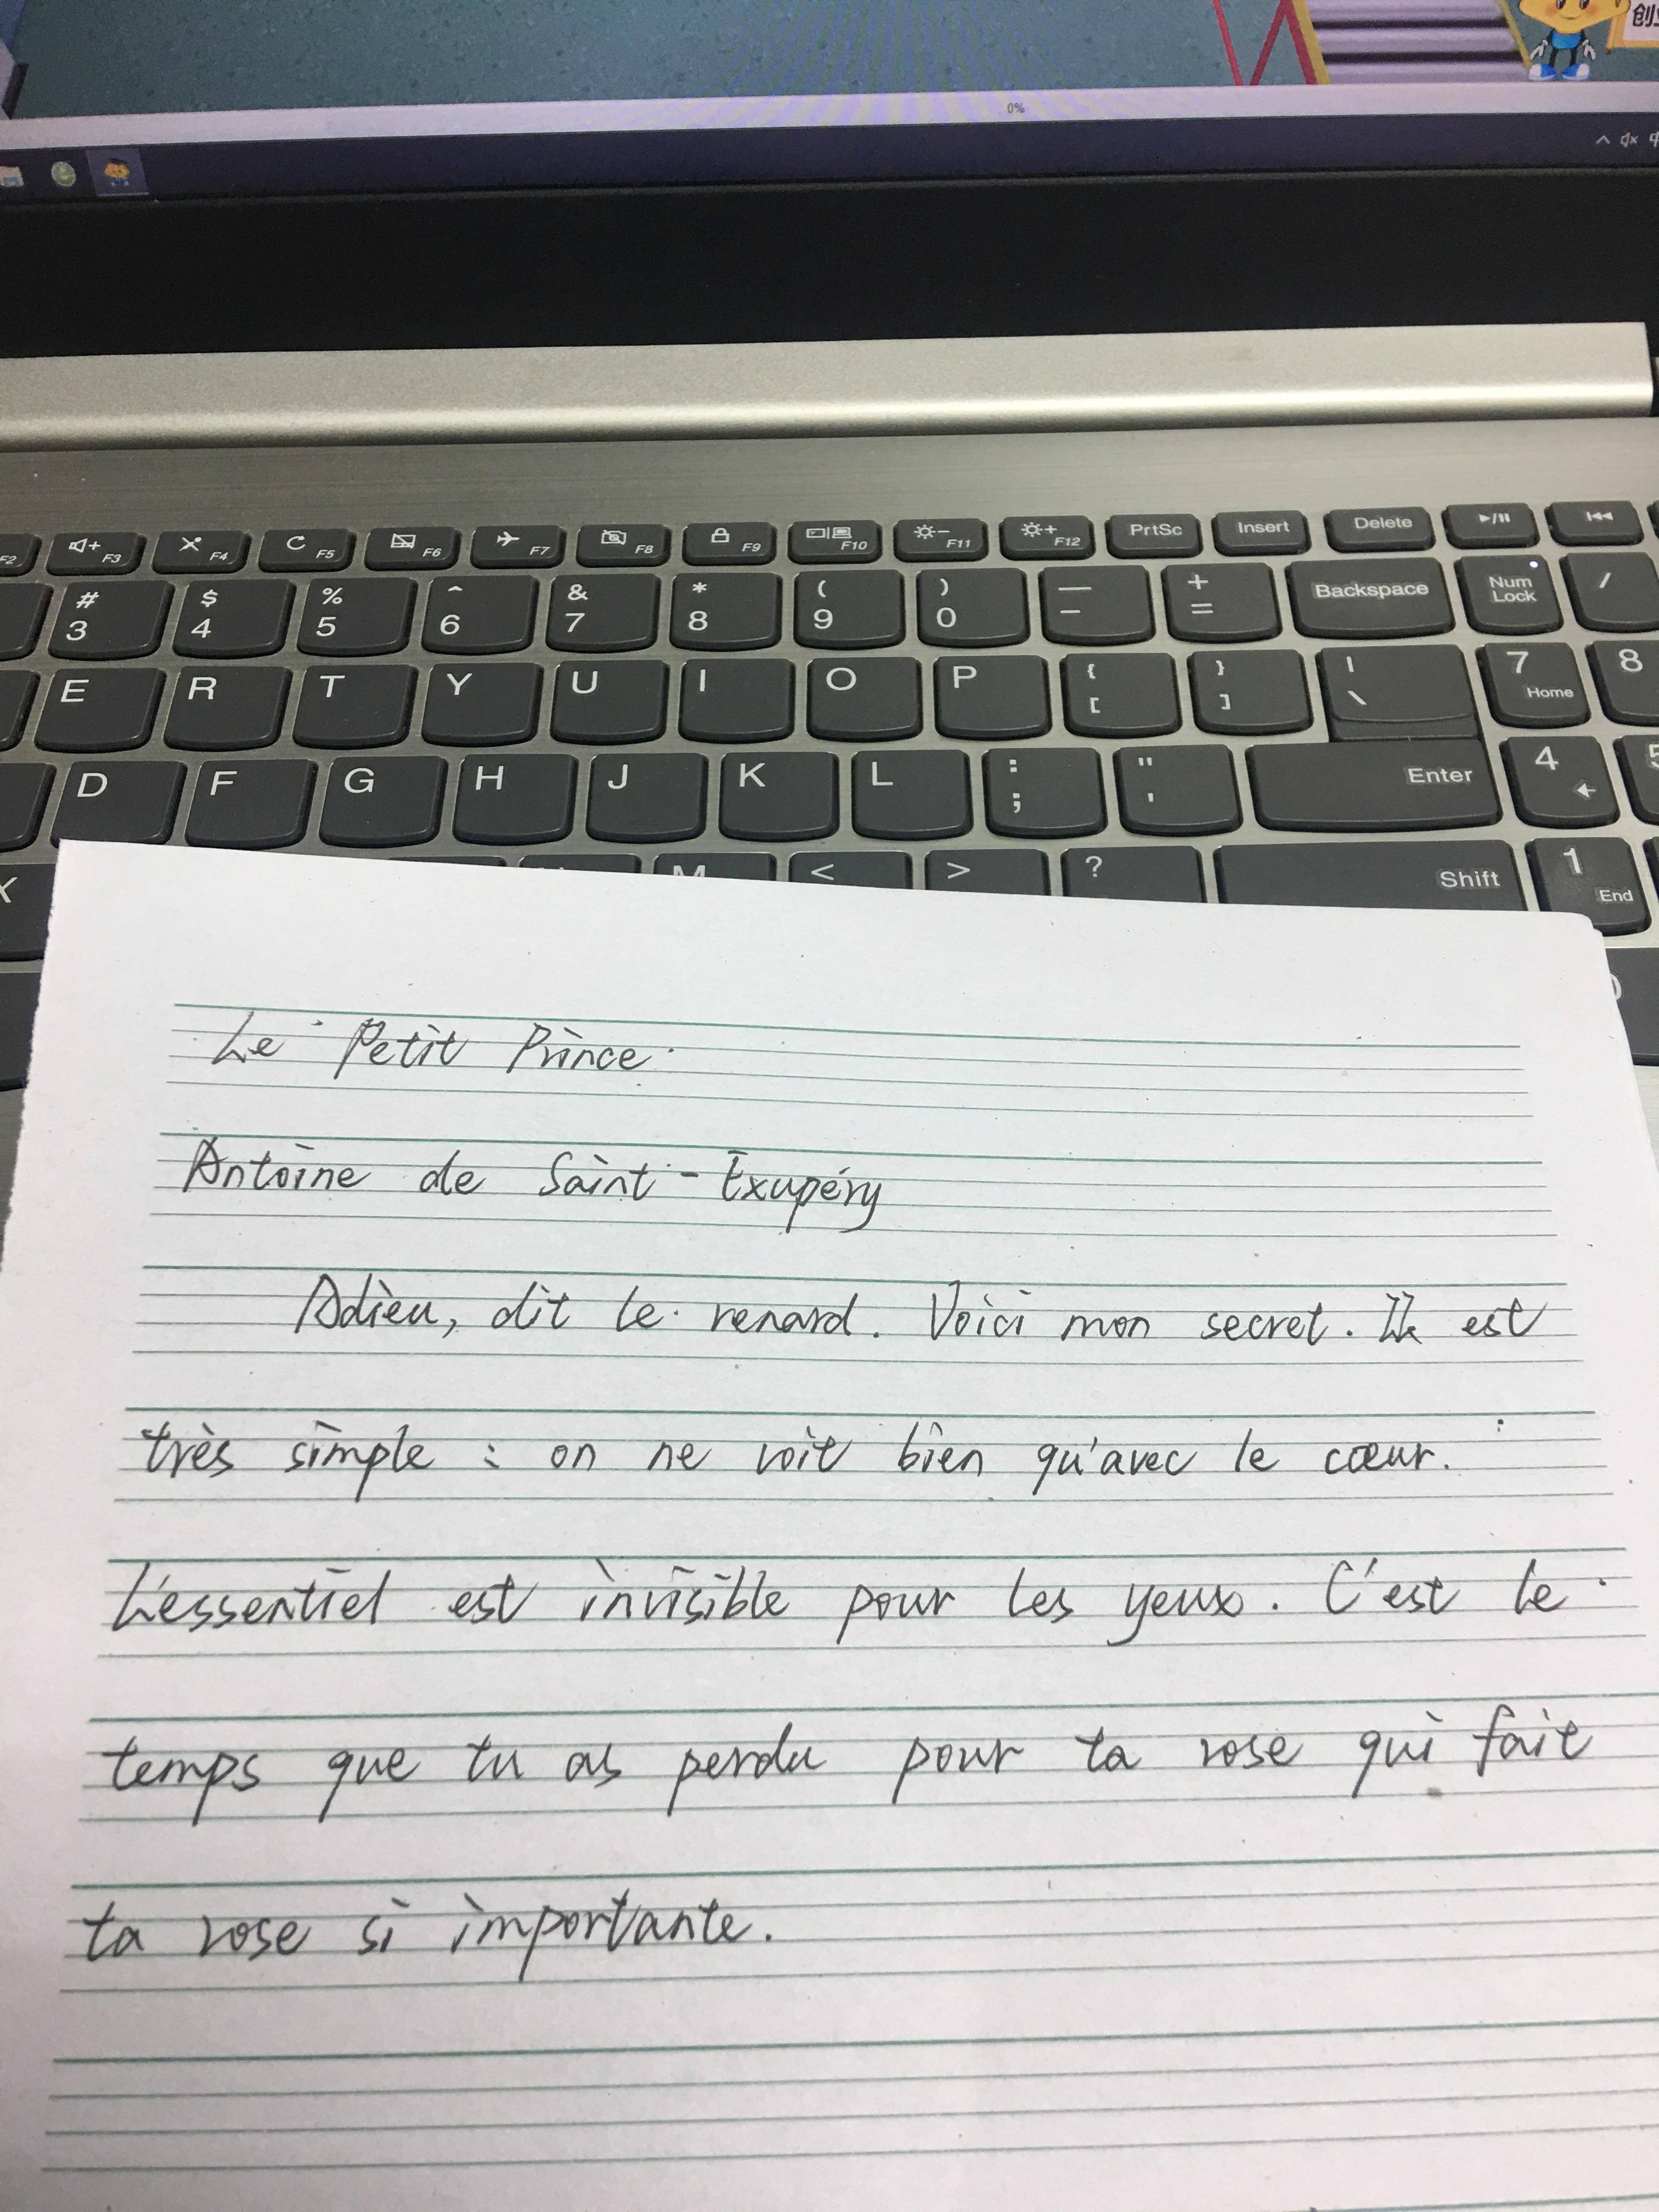 创
0%
F2 F3 F4 F5 F6 F7 F8 F9 F10 F11 F12 PrtSc Insert Delete
# 3 $ 4 % 5 ^ 6 & 7 * 8 ( 9 ) 0 — - + = Backspace Num Lock /
E R T Y U I O P { [ } ] | \ 7 Home 8
D F G H J K L : ; " ' Enter 4 5
X M < > ? Shift 1 End
Le Petit Prince
Antoine de Saint-Exupéry
Adieu, dit le renard. Voici mon secret. Il est
très simple : on ne voit bien qu'avec le cœur.
L'essentiel est invisible pour les yeux. C'est le
temps que tu as perdu pour ta rose qui fait
ta rose si importante.